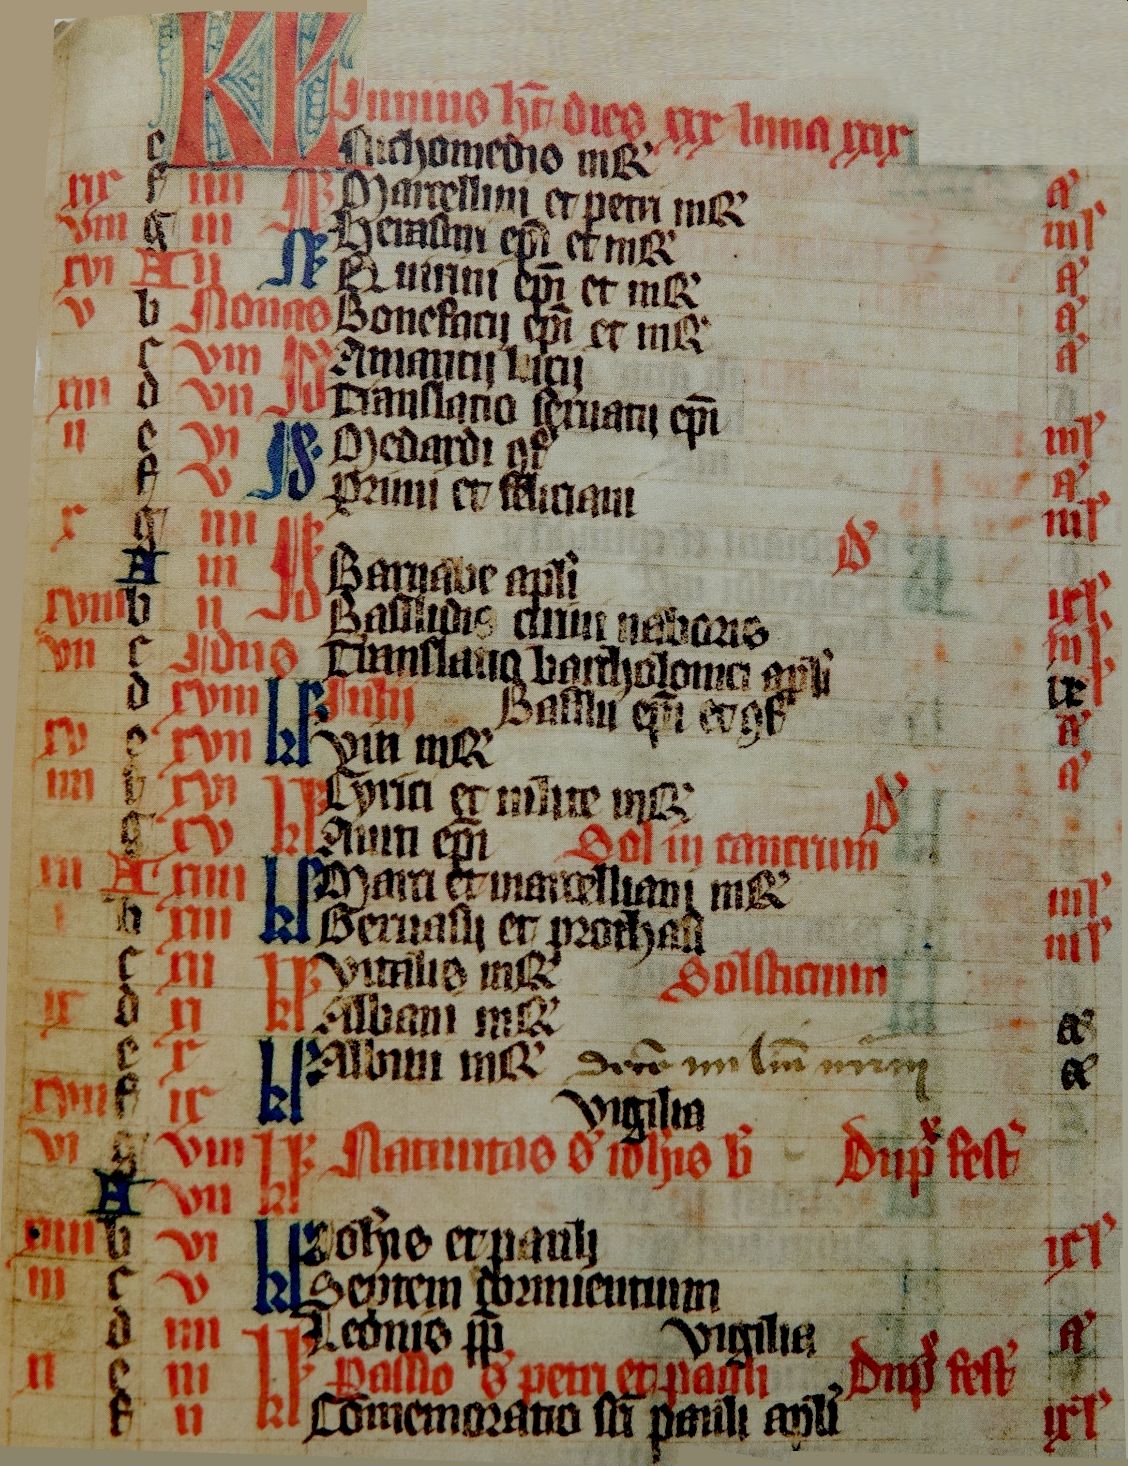 KL Junius ht dies xxx luna xxix
e Nichomedis mR
xix f iiii N Marcellini et petri mR a
viii g iii Herasmi epi et mR iiil
xvi A ii N Quirini epi et mR a
v b Nonas Bonefacij epi et mR a
c viii Id Amantij a
xiii d vii Translatio seruatij epi
ii e vi Id Medardi iiil
f v Primi et feliciani a
x g iiii Id iiil
A iii Barnabe apli d ixl
xviii b ii Basilidis cirini naboris iiil
vii c Idus Translatio bartholomei apli ixl
d xviii kl Julij Basilii epi et
xv e xvii Viti mR a
iiii f xvi kl Cyrici et iulite mR a
g xv Auiti epi Sol in cancrum d
xii A xiiii kl Marci et marcelliani mR iiil
i b xiii Geruasij et prothasij iiil
c xii kl Vitalis mR Solsticium
ix d xi Albani mR a
e x kl Albini mR a
xvii f ix Vigilia
vi g viii kl Natiuitas s iohis b Dup fest
A vii
xiiii b vi kl Johis et pauli ixl
iii c v Septem dormientium
d iiii kl Leonis pp Vigilia a
xi e iii Passio s petri et pauli Dup fest
f ii Comemoratio sci pauli apli ixl